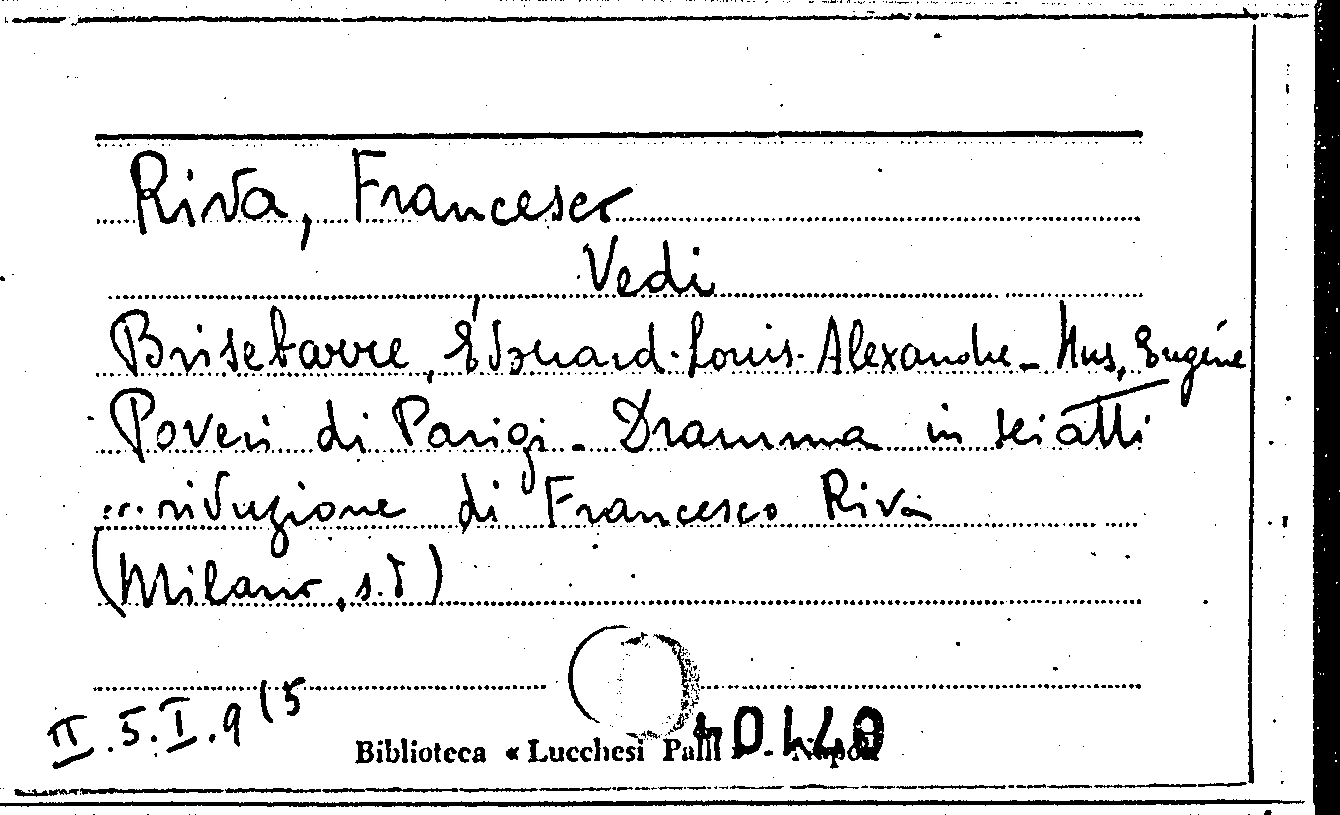 Riva, Francesco
Vedi
Brisebarre, Édouard-Louis-Alexandre - Nus, Eugéne
Poveri di Parigi - Dramma in sei atti
... riduzione di Francesco Riva
(Milano, s.d)
II.5.I.9(5
Biblioteca « Lucchesi Palli » - Napoli